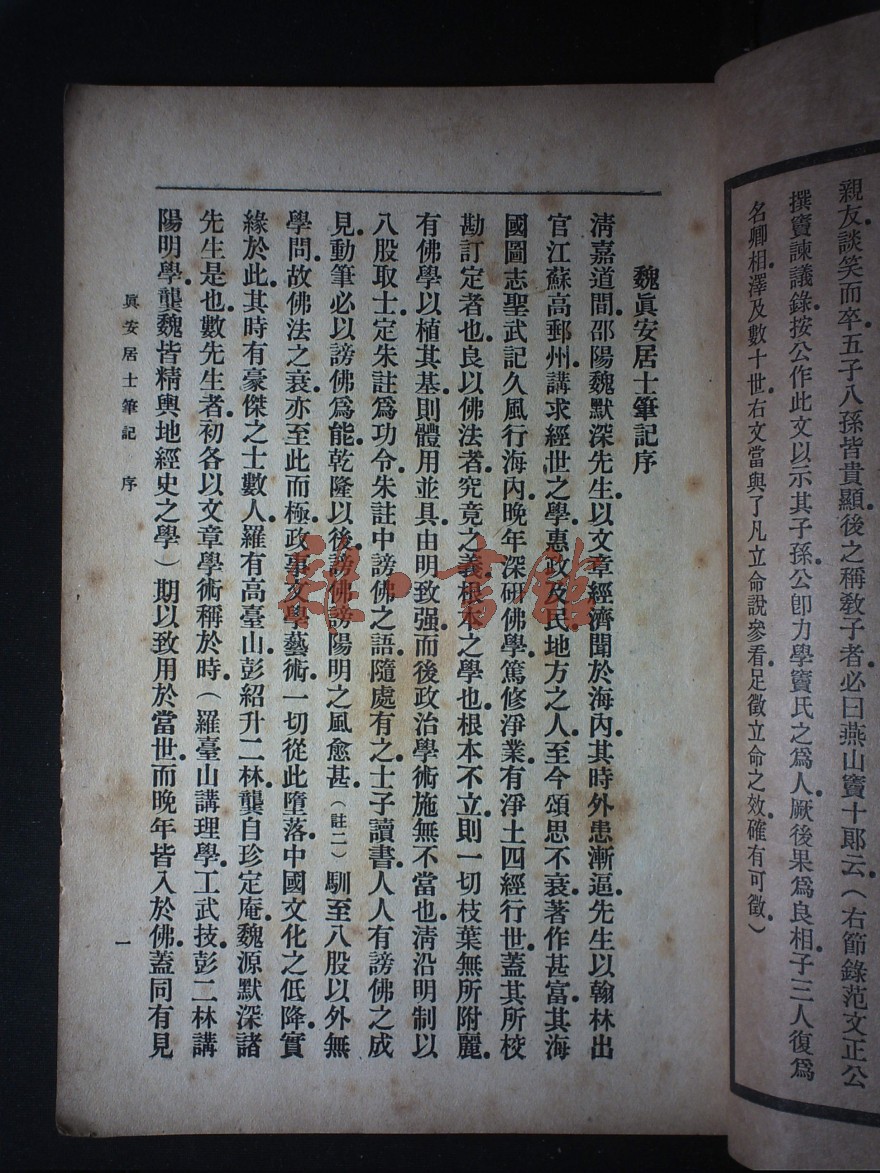 親友談笑而卒。五子八孫皆貴顯。後之稱教子者。必曰燕山竇十郞云。（右節錄范文正公
撰竇諫議錄。按公作此文以示其子孫。公卽力學竇氏之爲人。厥後果爲良相。子三人復爲
名卿相。澤及數十世。右文當與了凡立命說參看。足徵立命之效。確有可徵。）
魏眞安居士筆記序
淸嘉道間。邵陽魏默深先生。以文章經濟聞於海內。其時外患漸逼。先生以翰林出
官江蘇高郵州。講求經世之學。惠政及民。地方之人。至今頌思不衰。著作甚富。其海
國圖志聖武記久風行海內。晚年深研佛學。篤修淨業。有淨土四經行世。蓋其所校
勘訂定者也。良以佛法者。究竟之義。根本之學也。根本不立。則一切枝葉無所附麗。
有佛學以植其基。則體用並具。由明致强。而後政治學術施無不當也。淸沿明制以
八股取士。定朱註爲功令。朱註中謗佛之語。隨處有之。士子讀書。人人有謗佛之成
見。動筆必以謗佛爲能。乾隆以後。謗佛謗陽明之風愈甚。（註二）馴至八股以外無
學問。故佛法之衰。亦至此而極。政事文學藝術。一切從此墮落。中國文化之低降。實
緣於此。其時有豪傑之士數人。羅有高臺山。彭紹升二林。龔自珍定庵。魏源默深諸
先生是也。數先生者。初各以文章學術稱於時。（羅臺山講理學。工武技。彭二林講
陽明學。龔魏皆精輿地經史之學）期以致用於當世。而晚年皆入於佛。蓋同有見
眞安居士筆記 序
一
緣·書館